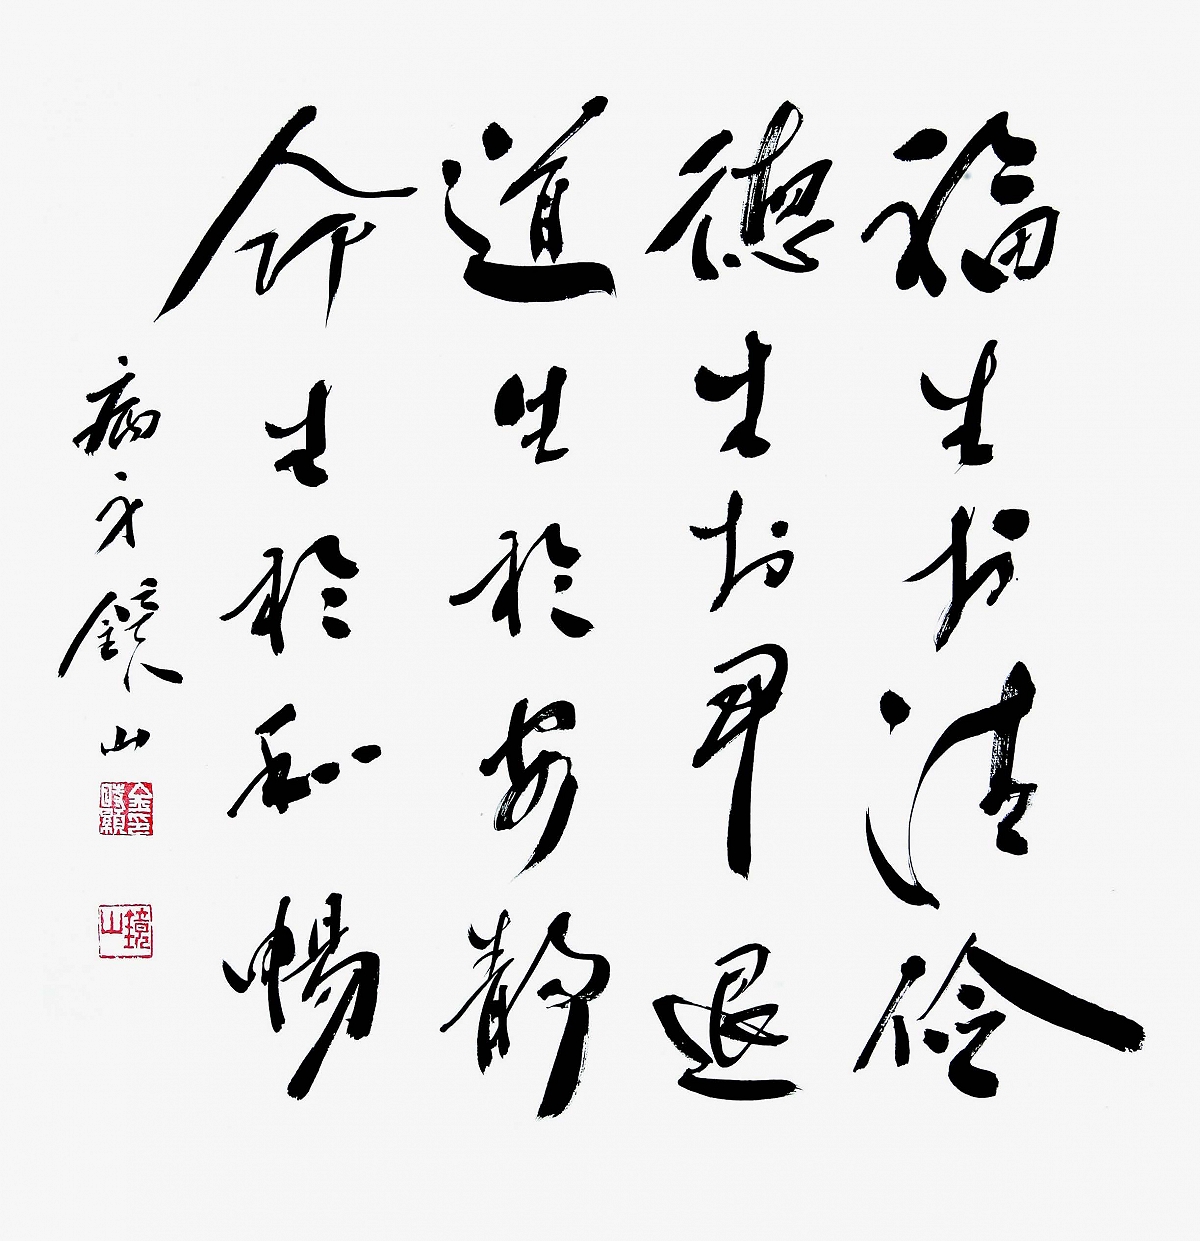 福生於清儉
德生於卑退
道生於安靜
命生於和暢
鏡山
鏡山